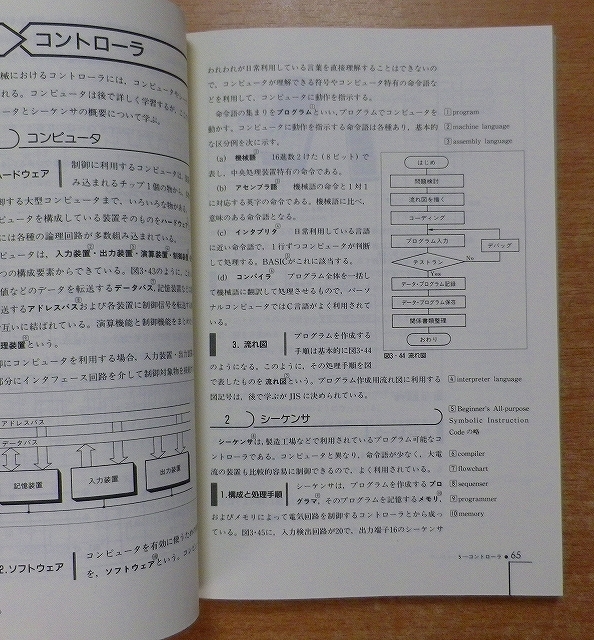 コントローラ
械におけるコントローラには、コンピュータや
れる。コンピュータは後で詳しく学習するが、ここ
ータとシーケンサの概要について学ぶ。
コンピュータ
ハードウェア
制御に利用するコンピュータは、
み込まれるチップ1個の物から、
御する大型コンピュータまで、いろいろな物がある。
ピュータを構成している装置そのものをハードウェア
には各種の論理回路が多数組み込まれている。
ピュータは、入力装置・出力装置・演算装置・制御装置
つの構成要素からできている。図3・43のように、これ
値などのデータを転送するデータバス、記憶装置
送するアドレスバスおよび各装置に制御信号を転送する
互いに結ばれている。演算機能と制御機能をまとめ
理装置という。
にコンピュータを利用する場合、入力装置・出力装置
部分にインタフェース回路を介して制御対象物を接続
アドレスバス
データバス
記憶装置
入力装置
出力装置
2.ソフトウェア
コンピュータを有効に使うため
を、ソフトウェアという。コンピ
われわれが日常利用している言葉を直接理解することはできないの
で、コンピュータが理解できる符号やコンピュータ特有の命令語な
どを利用して、コンピュータに動作を指示する。
命令語の集まりをプログラムといい、プログラムでコンピュータを
動かす。コンピュータに動作を指示する命令語は各種あり、基本的
な区分例を次に示す。
(a) 機械語② 16進数2けた(8ビット)で
表し、中央処理装置特有の命令である。
(b) アセンブラ語③ 機械語の命令と1対1
に対応する英字の命令である。機械語に比べ、
意味のある命令語となる。
(c) インタプリタ④ 日常利用している言語
に近い命令語で、1行ずつコンピュータが判断
して処理する。BASIC⑤がこれに該当する。
(d) コンパイラ⑥ プログラム全体を一括し
て機械語に翻訳して処理させるもので、パーソ
ナルコンピュータではC言語がよく利用されて
いる。
3. 流れ図
プログラムを作成する
手順は基本的に図3・44
のようになる。このように、その処理手順を図
で表したものを流れ図⑦という。プログラム作成用流れ図に利用する
図記号は、後で学ぶが JIS に決められている。
2 シーケンサ
シーケンサ⑧は、製造工場などで利用されているプログラム可能なコ
ントローラである。コンピュータと異なり、命令語が少なく、大電
流の装置も比較的容易に制御できるので、よく利用されている。
1.構成と処理手順
シーケンサは、プログラムを作成するプロ
グラマ⑨、そのプログラムを記憶するメモリ⑩、
およびメモリによって電気回路を制御するコントローラとから成っ
ている。図3・45に、入力検出回路が20で、出力端子16のシーケンサ
はじめ
問題検討
流れ図を描く
コーディング
プログラム入力
デバッグ
テストラン
No
Yes
データ・プログラム記録
データ・プログラム保存
関係書類整理
おわり
図3・44 流れ図
①program
②machine language
③assembly language
④interpreter language
⑤Beginner's All-purpose
Symbolic Instruction
Code の略
⑥compiler
⑦flowchart
⑧sequenser
⑨programmer
⑩memory
5—コントローラ ● 65